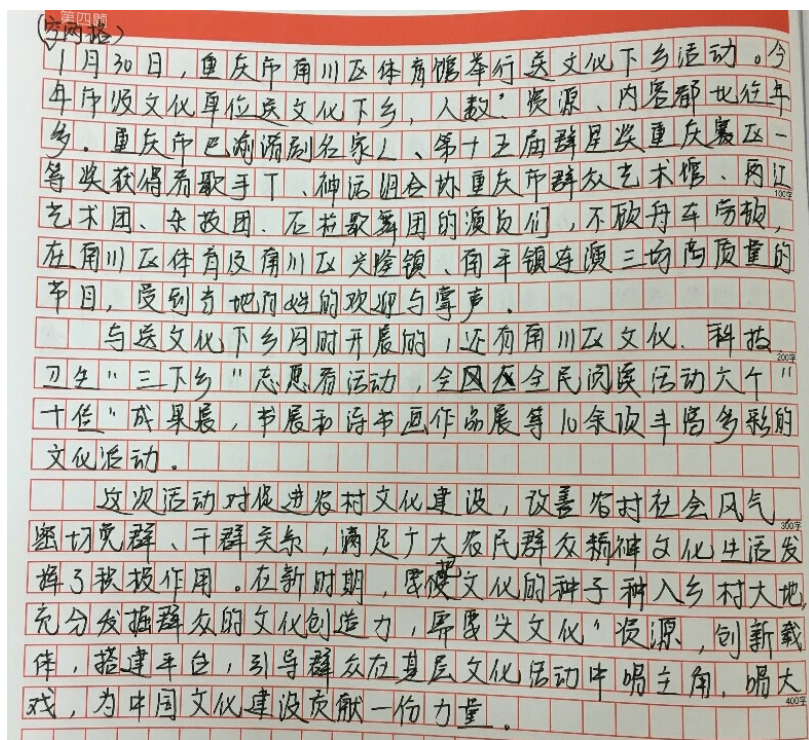 第四题
(空两格)
1月30日,重庆市南川区体育馆举行送文化下乡活动。今
年市级文化单位送文化下乡,人数、资源、内容都比往年
多。重庆市巴渝谐剧名家L、第十五届群星奖重庆赛区一
等奖获得者歌手T、神话组合协重庆市群众艺术馆、两江
100字
艺术团、杂技团、石柱歌舞团的演员们,不顾舟车劳顿,
在南川区体育及南川区兴隆镇、南平镇连演三场高质量的
节目,受到当地百姓的欢迎与掌声。
与送文化下乡同时开展的,还有南川区文化、科技、
200字
卫生"三下乡"志愿者活动,全区全民阅读活动六个"
十佳"成果展,书展和诗书画作品展等10余项丰富多彩的
文化活动。
这次活动对促进农村文化建设,改善农村社会风气、
300字
密切党群、干群关系,满足广大农民群众精神文化生活发
挥了积极作用。在新时期,要把文化的种子种入乡村大地,
充分发掘群众的文化创造力,需要 文化"资源,创新载
体,搭建平台,引导群众在基层文化活动中唱主角、唱大
400字
戏,为中国文化建设贡献一份力量。